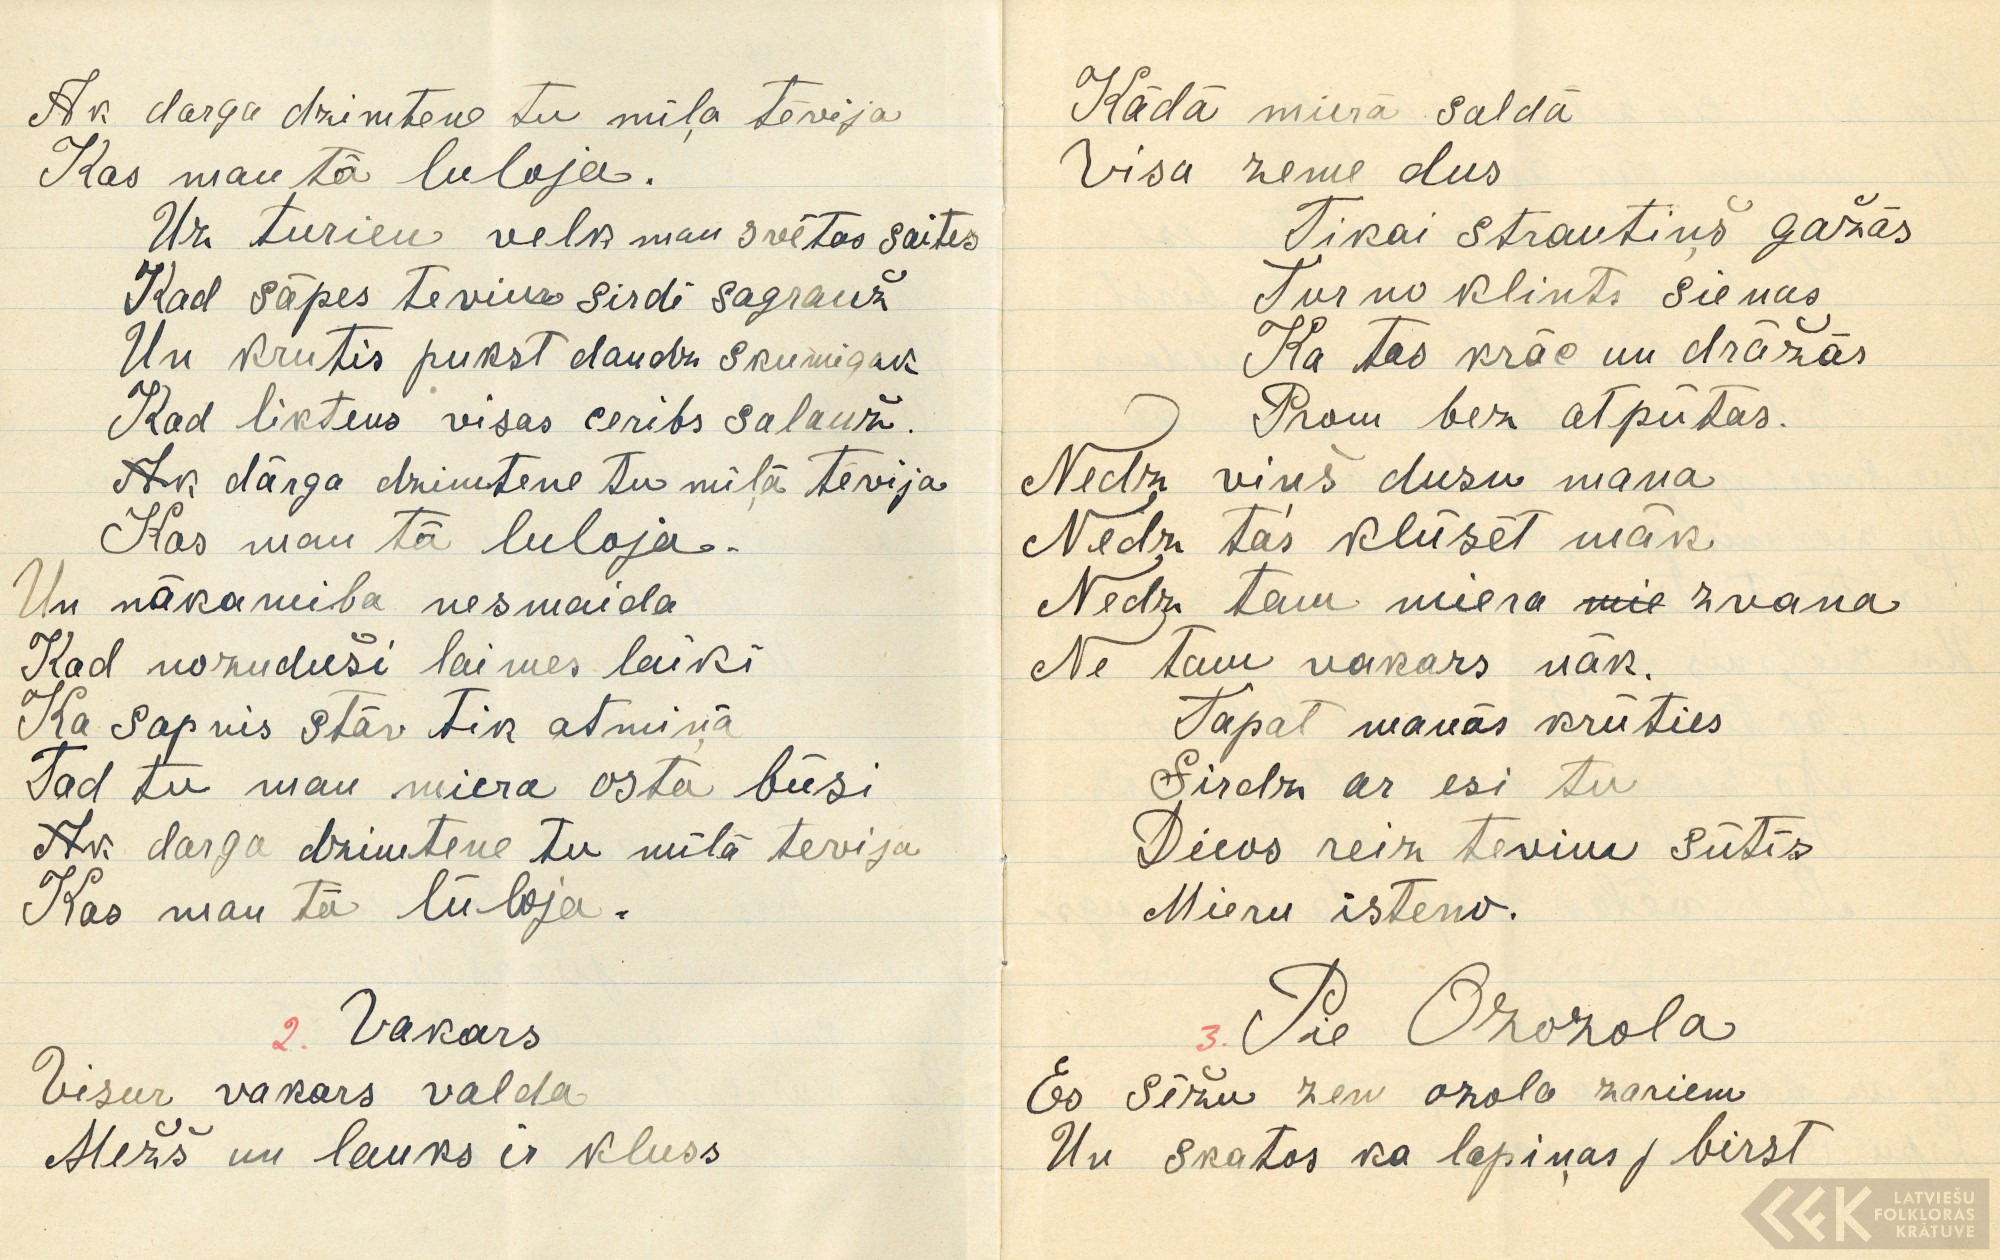 Ak darga dzimtene tu mīļa tēvija
Kas man tā luloja.
Uz turien velk man svētas saites
Kad sāpes tevim sirdī sagrauž
Un krutis pukst daudz skumigak
Kad liktens visas ceribs salauž.
Ak dārga dzimtene tu mīļā tēvija
Kas man tā luloja.
Un nākamiba nesmaida
Kad nozuduši laimes laiki
Ka sapnis stāv tik atmiņā
Tad tu man miera osta būsi
Ak darga dzimtene tu mīlā tevija
Kas man tā lūloja.
2. Vakars
Visur vakars valda
Mežš un lauks ir kluss
Kādā mierā saldā
Visa zeme dus
Tikai strautiņš gažās
Tur no klints sienas
Ka tas krāc un drāžās
Prom bez atpūtas.
Nedz vinš dusu mana
Nedz tas klūsēt māk
Nedz tam miera mie zvana
Ne tam vakars nāk.
Tapat manās krūties
Sirdz ar esi tu
Dievs reiz tevim sūtīs
Mieru isteno.
3. Pie Ozozola
Es sēžu zem ozola zariem
Un skatos ka lapiņas j birst
LATVIEŠU
FOLKLORAS
KRĀTUVE